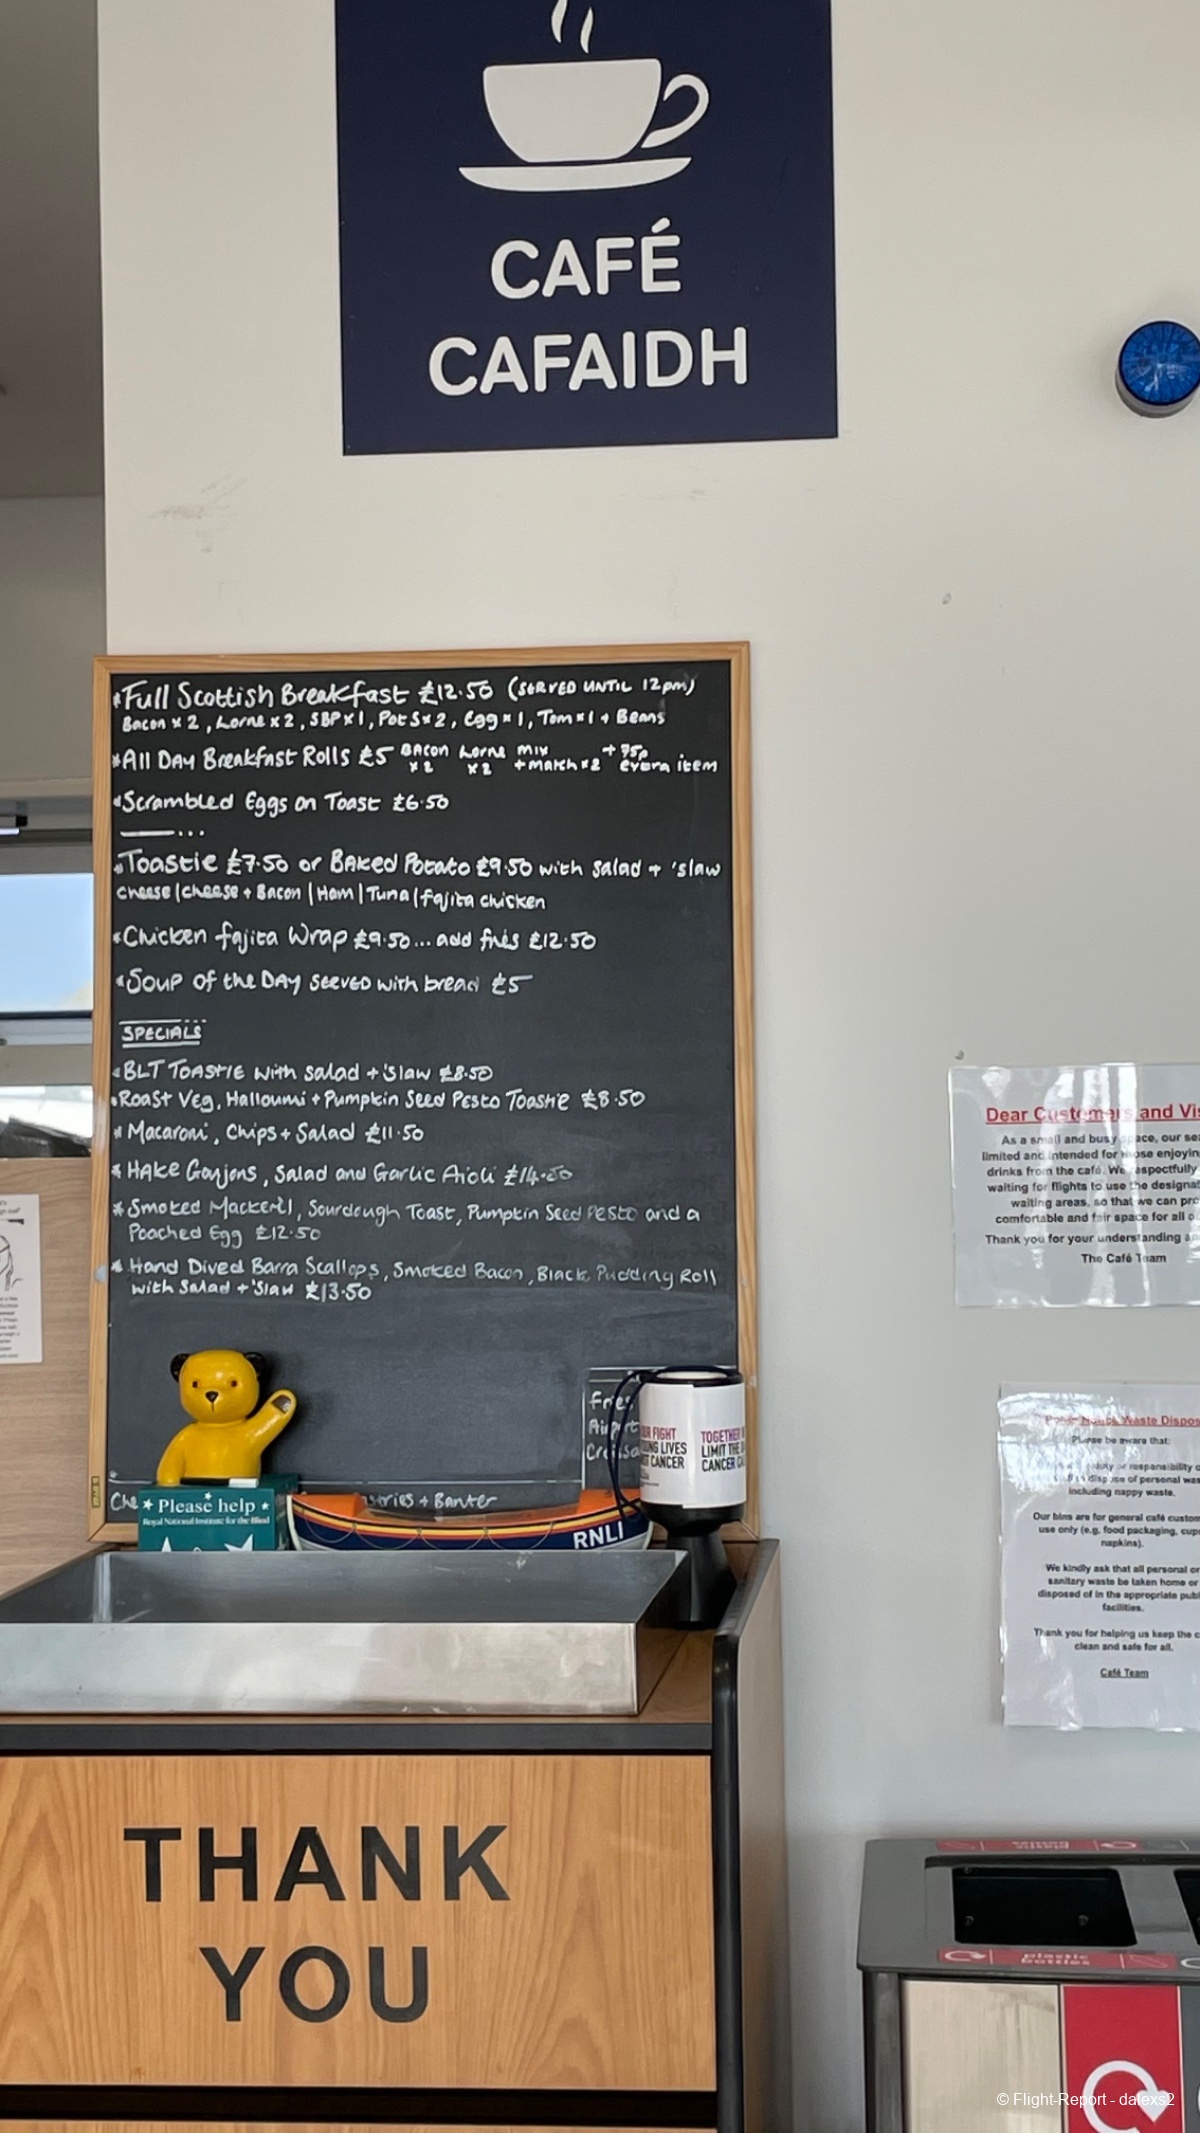 CAFÉ
CAFAIDH
*Full Scottish Breakfast £12.50 (SERVED UNTIL 12pm)
Bacon x 2, Lorne x 2, SBP x 1, Pot S x 2, Egg x 1, Tom x 1 + Beans
*All Day Breakfast Rolls £5 Bacon x2 Lorne x2 mix + match x2 + 75p extra item
*Scrambled Eggs on Toast £6.50
*Toastie £7.50 or Baked Potato £9.50 with salad + 'slaw
cheese | cheese + Bacon | Ham | Tuna | fajita chicken
*Chicken fajita Wrap £9.50... add fries £12.50
*Soup of the Day served with bread £5
SPECIALS
*BLT Toastie with salad + 'Slaw £8.50
*Roast Veg, Halloumi + Pumpkin Seed Pesto Toastie £8.50
*Macaroni, Chips + Salad £11.50
*Hake Gonjons, Salad and Garlic Aioli £14.50
*Smoked Mackerel, Sourdough Toast, Pumpkin Seed Pesto and a
Poached Egg £12.50
*Hand Dived Barra Scallops, Smoked Bacon, Black Pudding Roll
with Salad + 'Slaw £13.50
+ Banter
Please help
Royal National Institute for the Blind
RNLI
TOGETHER
LIMIT THE
CANCER
FIGHT
LIVES
CANCER
Dear Customers and
As a small and busy space, our
limited and intended for those enjoying
drinks from the café. We respectfully
waiting for flights to use the
waiting areas, so that we can
comfortable and fair space for all
Thank you for your understanding
The Café Team
Waste
Please be aware that:
responsibility
dispose of personal
including nappy waste.
Our bins are for general café
use only (e.g. food packaging,
napkins).
We kindly ask that all personal or
sanitary waste be taken home or
disposed of in the appropriate
facilities.
Thank you for helping us keep the
clean and safe for all.
Café Team
THANK
YOU
plastic
bottles
© Flight-Report - dalexs2